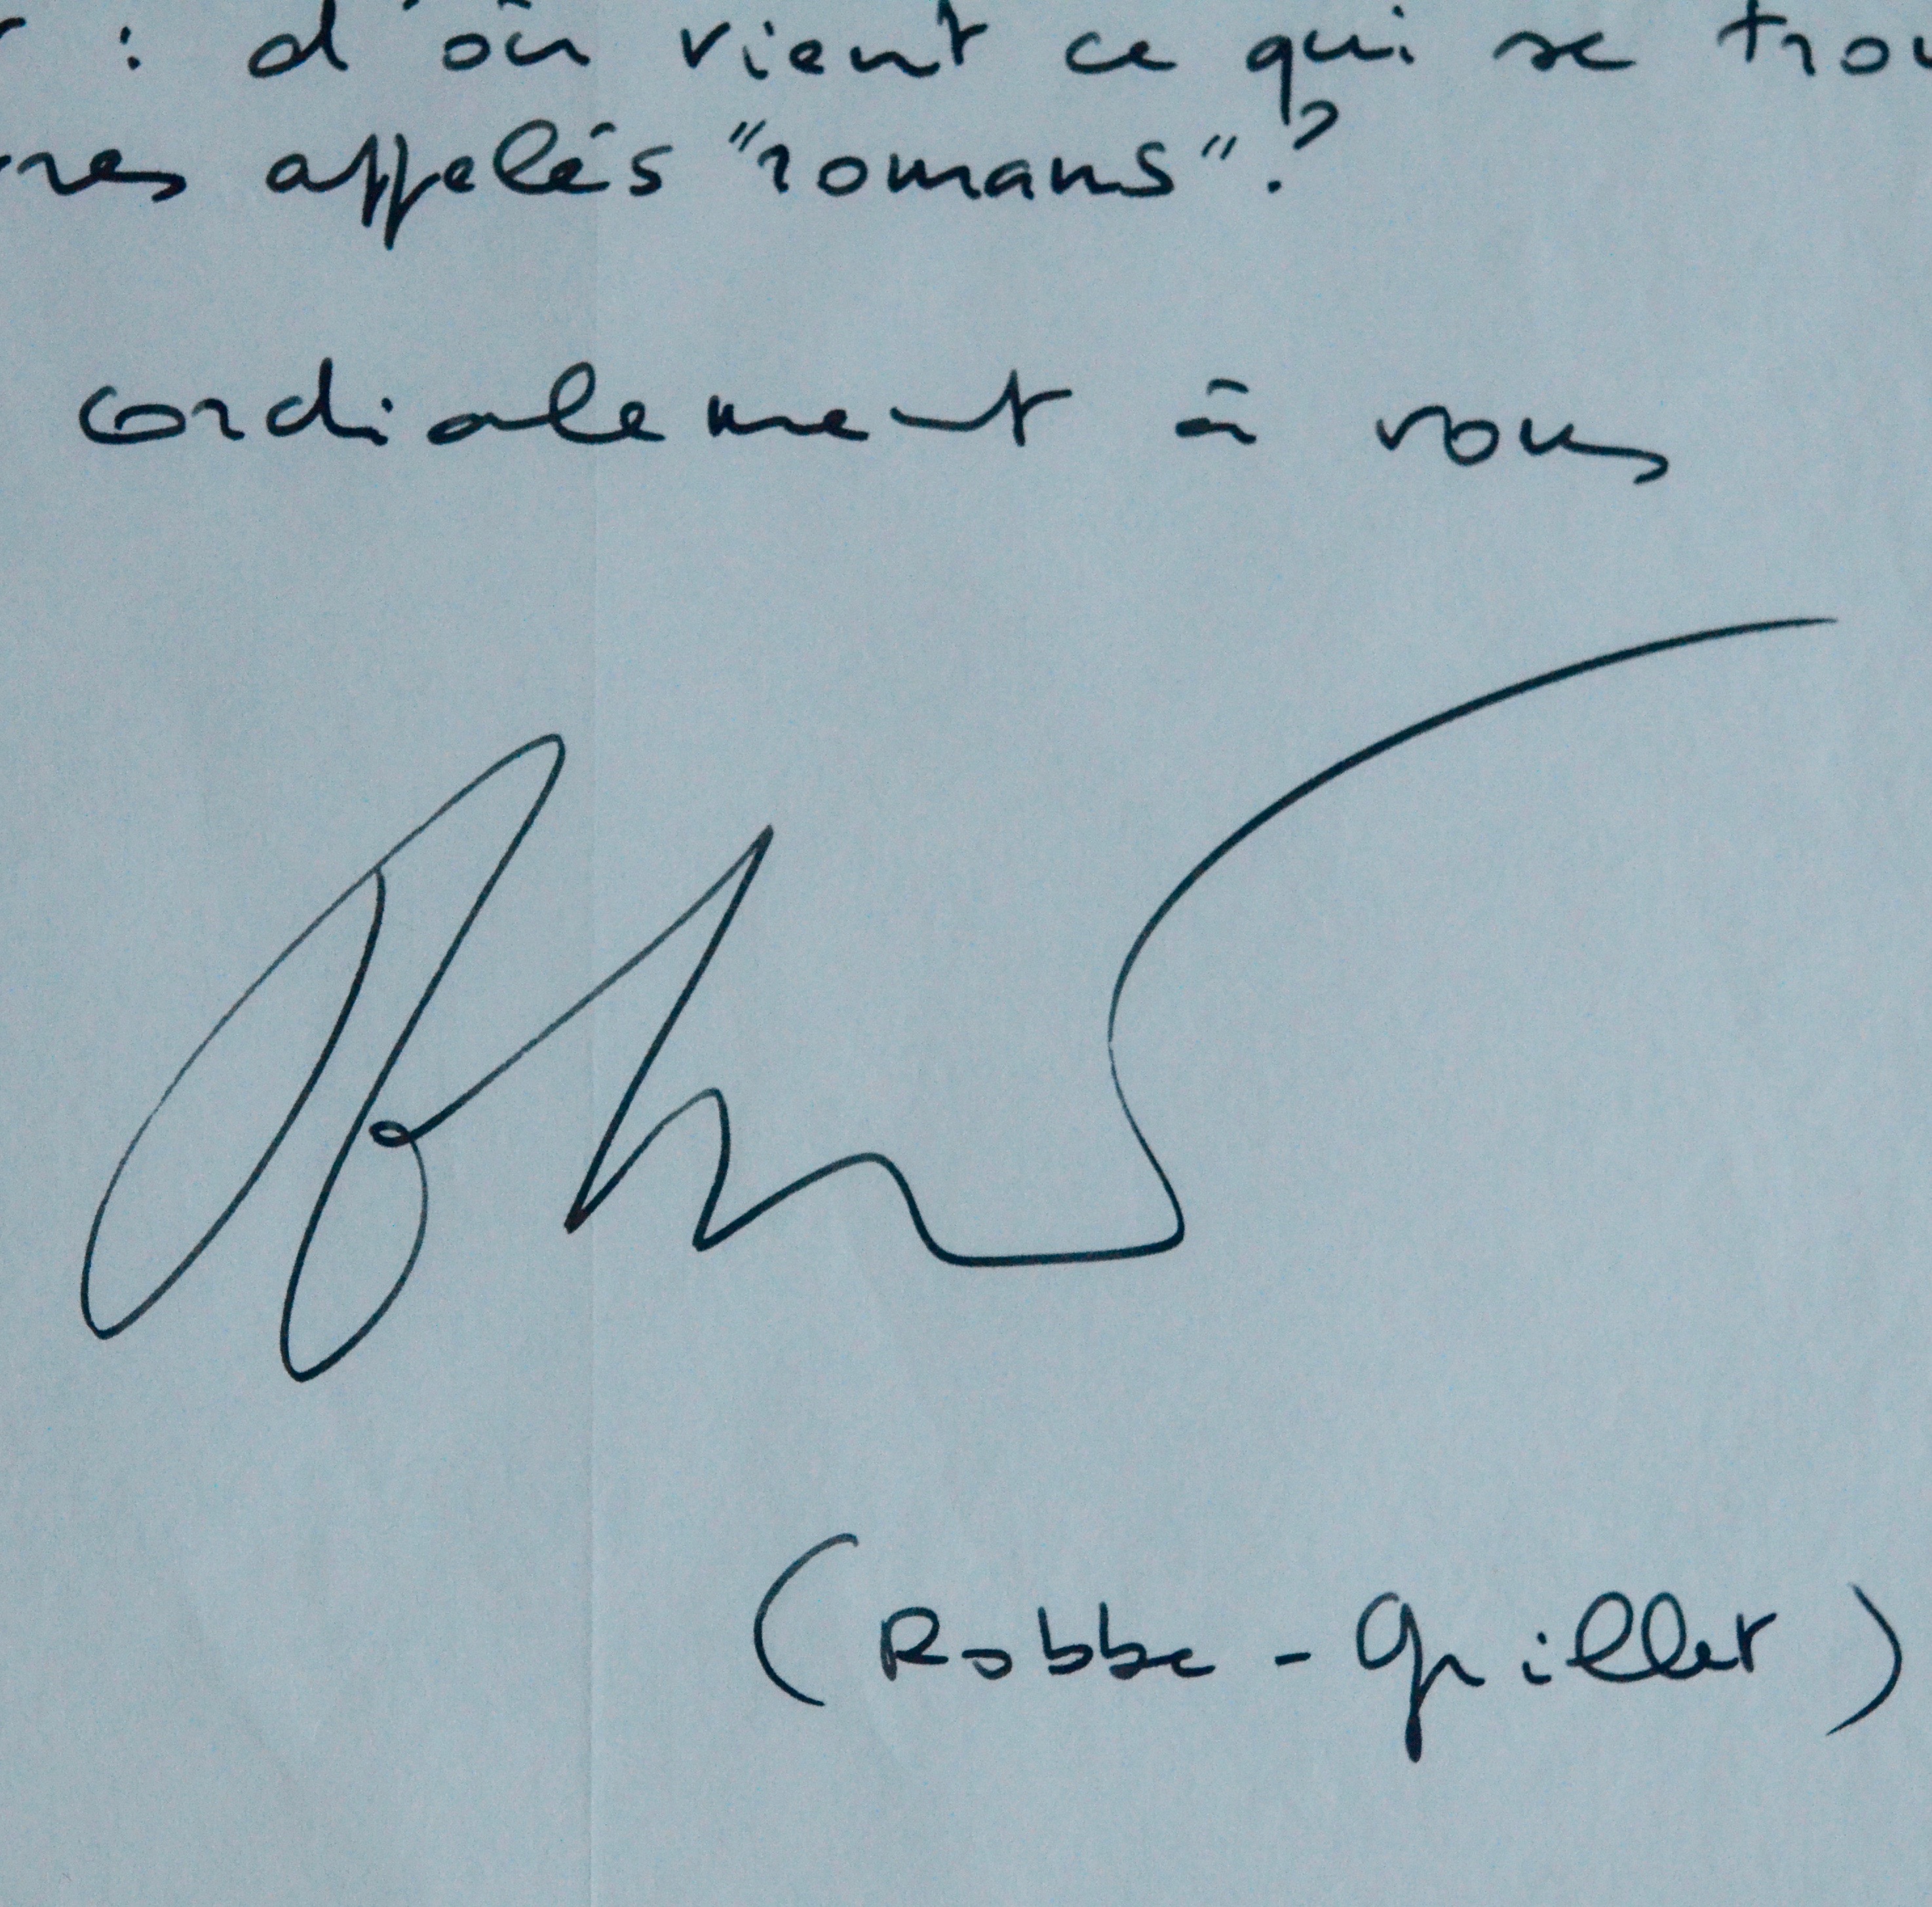 : d'où vient ce qui se trou
res appelés "romans" ?
cordialement à vous
(Robbe-Grillet)